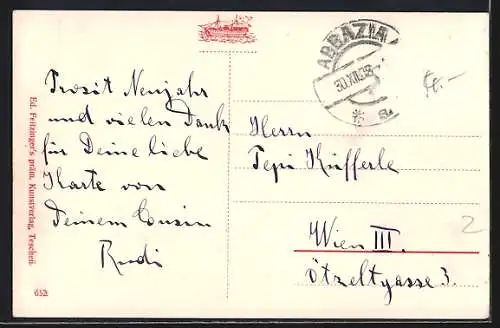 Prosit Neujahr
und vielen Dank
für Deine liebe
Karte von
Deinem Cousin
Rudi
ABBAZIA
30.XII.
Herrn
Pepi Küfferle
Wien III.
Ötzeltgasse 3.
2
Ed. Feitzinger's präm. Kunstverlag, Teschen.
652